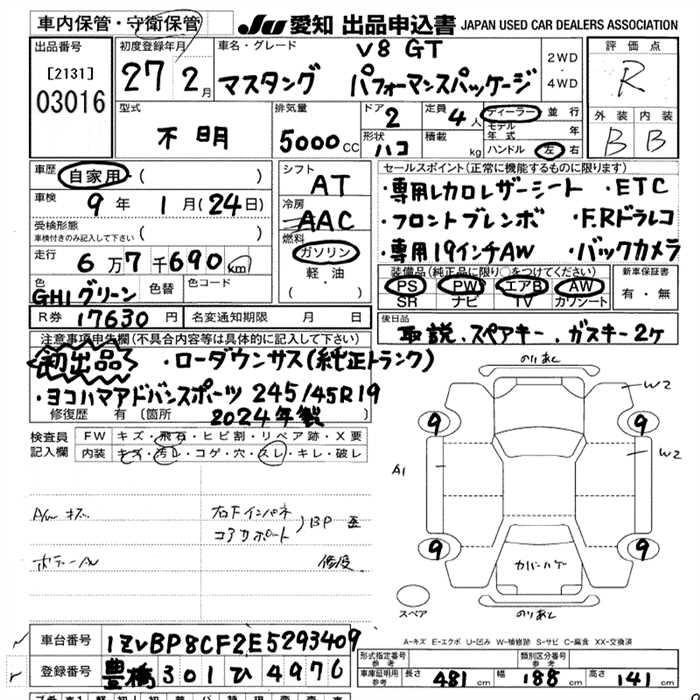 車内保管・守衛保管
JU 愛知 出品申込書 JAPAN USED CAR DEALERS ASSOCIATION
出品番号
[2131]
03016
初度登録年月
27 2月
車名・グレード
V8 GT
マスタング パフォーマンスパッケージ
2WD
・
4WD
評価点
R
外装 内装
B B
型式
不明
排気量
5000cc
ドア
2
定員
4人
形状
ハコ
積載
kg
ディーラー 並行
モデル年式 年
ハンドル 左 右
車歴
自家用 ( )
車検
9年 1月(24日)
受検形態
車検付きのみ記入して下さい ( )
走行
6万7千690km
色
GHI グリーン
色替
色コード
R券 17630円
名変通知期限 月 日
シフト
AT
冷房
AAC
燃料
ガソリン
軽・油
( )
セールスポイント(正常に機能するものに限ります)
・専用レカロレザーシート ・ETC
・フロントブレンボ ・F.Rドラレコ
・専用19インチAW ・バックカメラ
装備品(純正品に限り○をつけてください)
PS PW エアB AW
SR ナビ TV カワシート
新車保証書
有・無
後日品
取説、スペアキー、ガスキー2ケ
注意事項申告欄(不具合内容等は具体的に記入して下さい)
初出品 ・ローダウンサス(純正トランク)
・ヨコハマアドバンスポーツ 245/45R19
2024年製
修復歴 有 (箇所
検査員記入欄
FW キズ・飛石・ヒビ割・リペア跡・X要
内装 キズ・汚レ・コゲ・穴・スレ・キレ・破レ
A/W キズ
右下インパネ
コアサポート ) BP
ボデー
修復
のりあと
W2
W2
A1
9
9
9
9
カバーハゲ
スペア
のりあと
A-キズ E-エクボ U-凹み W-補修跡 S-サビ C-腐食 XX-交換済
車台番号 1ZVBP8CF2E5293409
登録番号 豊橋 301 ひ 4976
形式指定番号
参考
類別区分番号
参考
車庫証明用
参考
長さ 481cm
幅 188cm
高さ 141cm